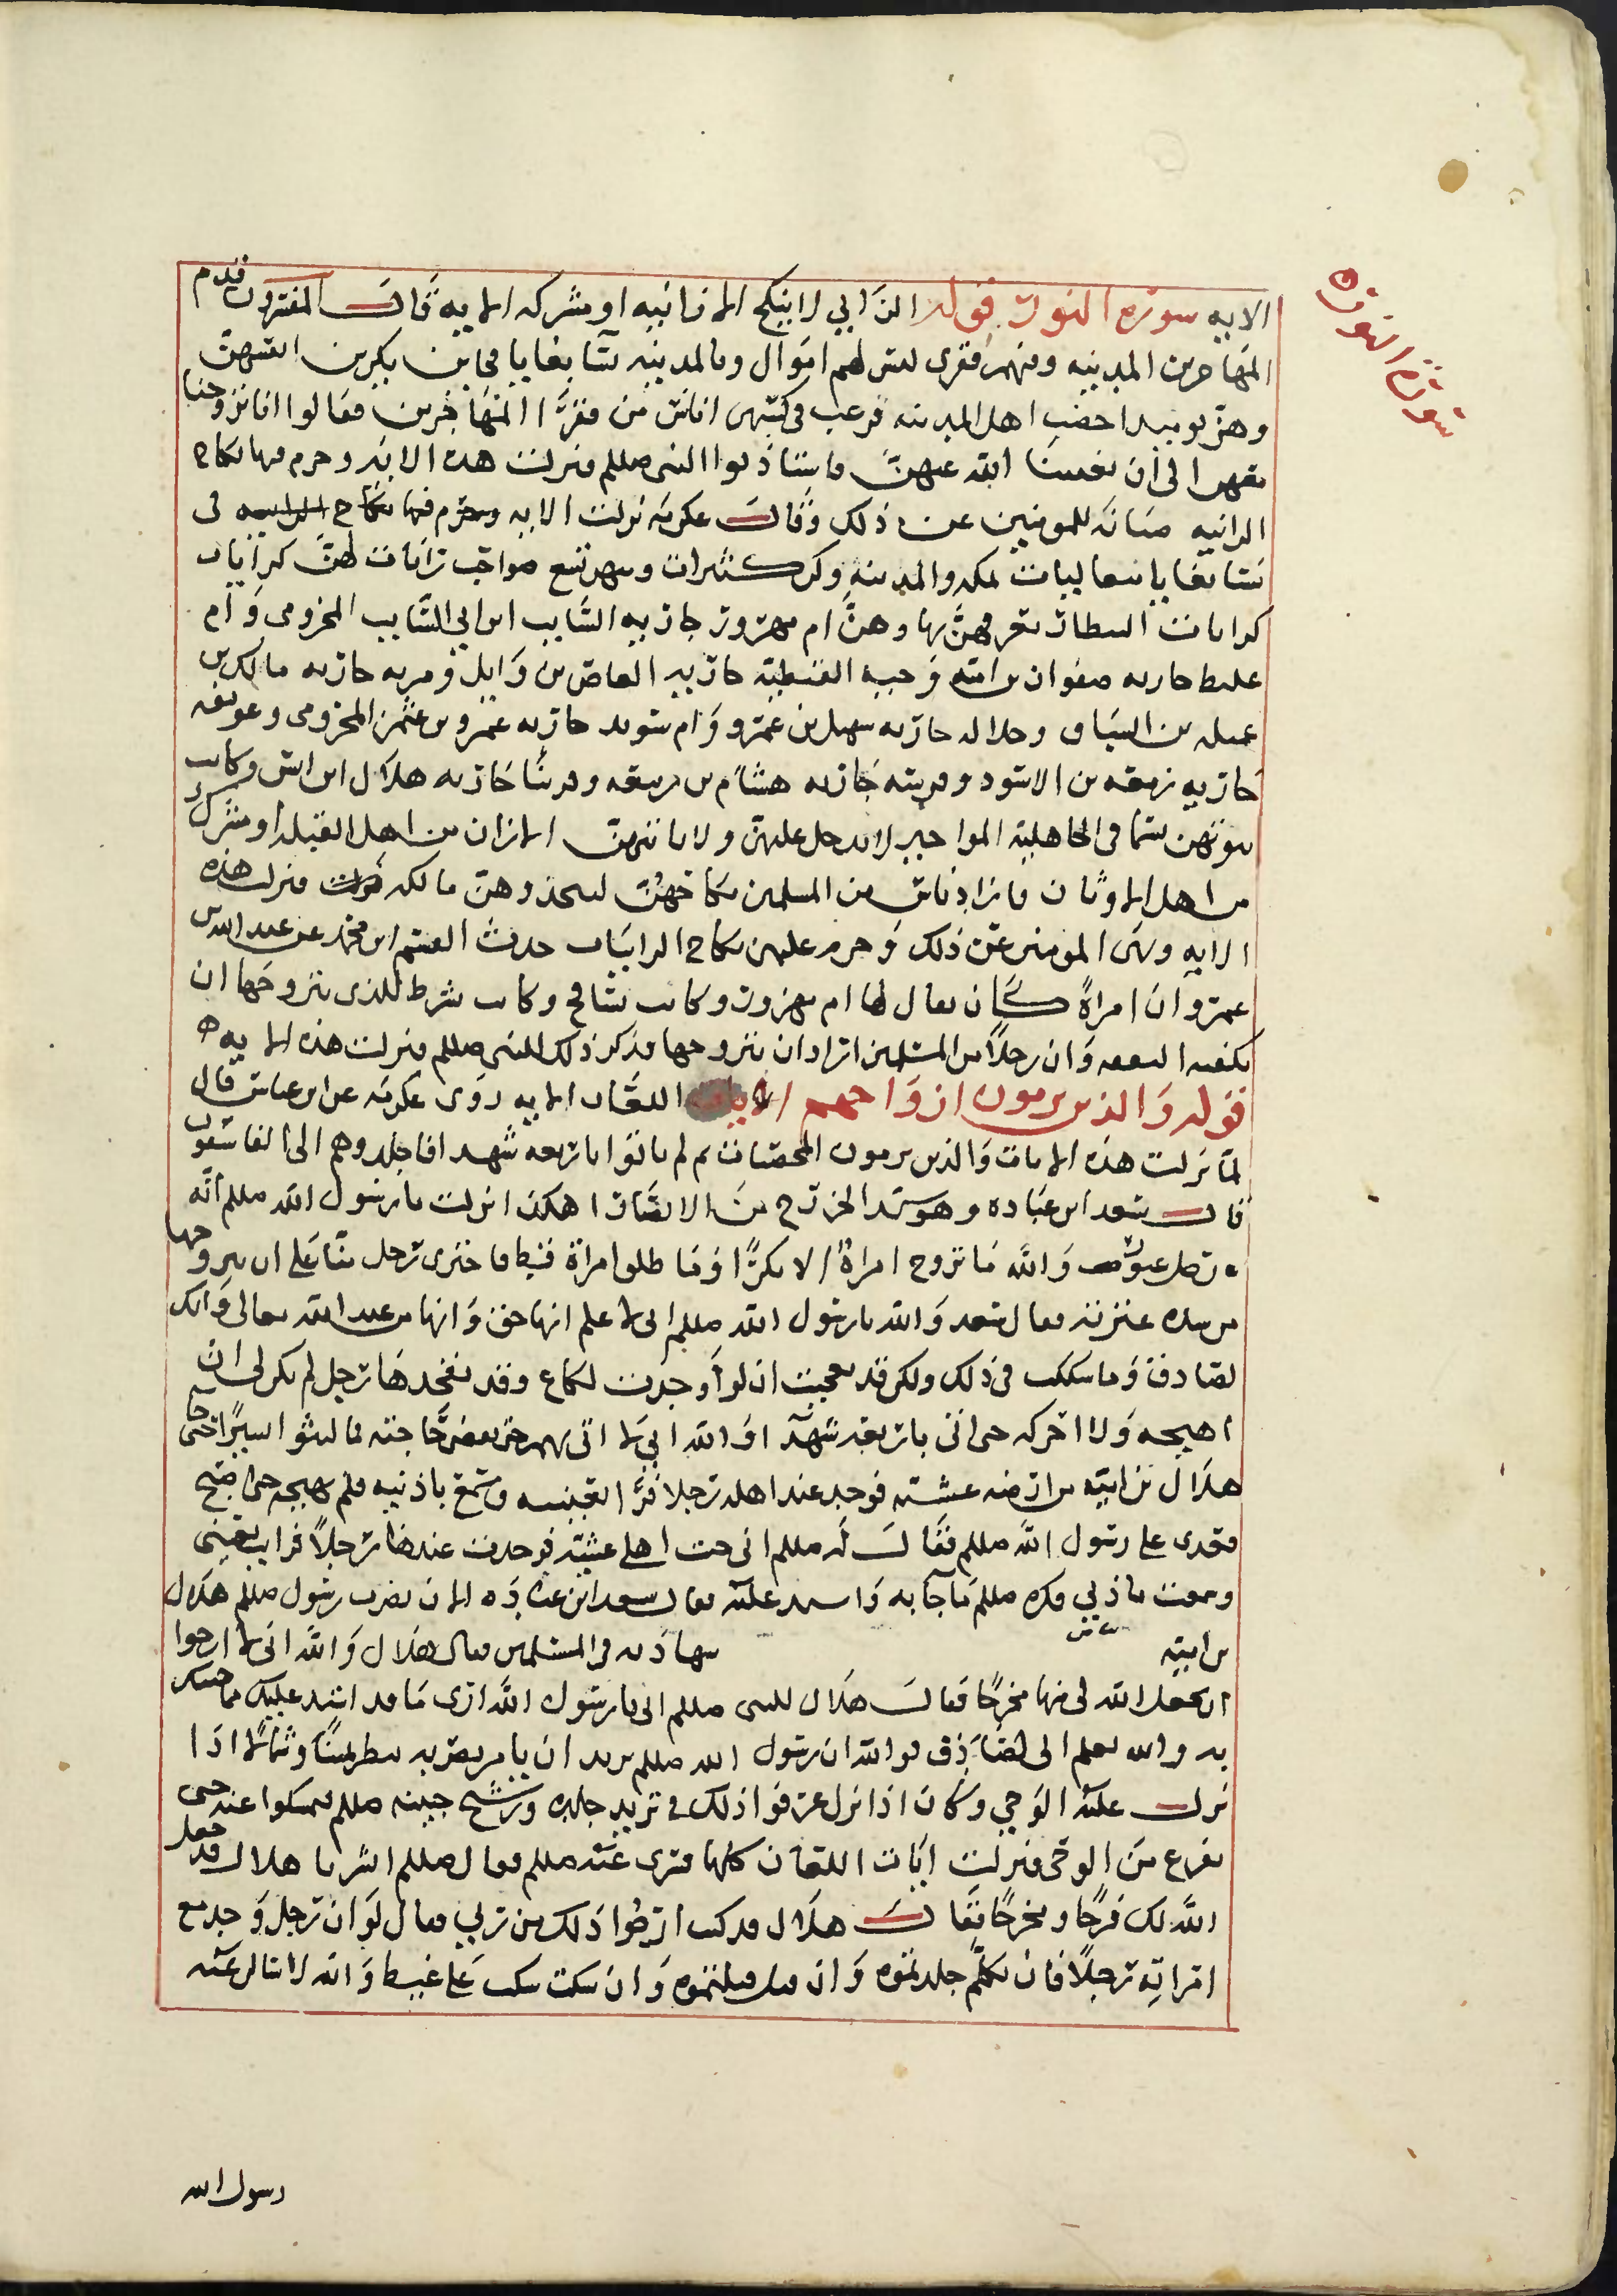 سورة النور
الايه سورة النور قوله الزاني لا ينكح الا زانيه او مشركه الايه قال المفسرون قدم
المهاجرين المدينه وفيهم فقرى ليس لهم اموال وبالمدينه نسا بغايا يكرين انفسهن
وهن يوميذ اخصب اهل المدينه فرغب في كسبهن اناس من فقرا المهاجرين فقالوا انا تزوجنا
منهن الى ان يغنينا الله عنهن فاستاذنوا النبي صللم فنزلت هذه الايه وحرم فيها نكاح
الزانيه صيانه للمومنين عن ذلك وقال عكرمه نزلت الايه في
نسا بغايا متعالنات بمكه والمدينه وكن كثيرات ومنهن تسع صواحب رايات لهن كرايات
كرايات البيطار يعرفهن بها وهن ام مهزور جاريه السايب ابن ابي السايب المخزومي وام
عليط جاريه صفوان بن اميه وحبه القبطيه جاريه العاص بن وايل ومريه جاريه مالك بن
عميله بن السباق وحلاله جاريه سهيل بن عمرو وام سويد جاريه عمرو بن عثمن المخزومي
جاريه زمعه بن الاسود جاريه هشام بن ربيعه وفرتنا جاريه هلال ابن انس وكانت
بيوتهن تسما في الجاهليه المواخير لا يدخل عليهن ولا ياتيهن الا زان من اهل القبله او مشرك
من اهل الاوثان فاراد ناس من المسلمين نكاحهن ليتخذوهن مالكه فنزلت هذه
الايه ونهى المومنين عن ذلك وحرم عليهم نكاح الزانيات حدث القسم ابن محمد عن عبد الله بن
عمرو ان امراة كان يقال لها ام مهزور وكانت تسافح وكانت تشرط للذي يتزوجها ان
تكفيه النفقه وان رجلا من المسلمين اراد ان يتزوجها فذكر ذلك للنبي صللم فنزلت هذه الايه
قوله والذين يرمون ازواجهم الايه اللعان الايه روى عكرمه عن ابن عباس قال
لما نزلت هذه الايات والذين يرمون المحصنات ثم لم ياتوا باربعه شهدا فاجلدوهم الى الفاسقون
قال سعد ابن عباده وهو سيد الخزرج من الانصار اهكذا انزلت يا رسول الله صللم انه
رجل غيور والله ما تزوج امراة الا بكرا وما طلق امراة قط فاجترى رجل منا على ان يتزوجها
من شده غيرته فقال سعد والله يا رسول الله صللم اني لا علم انها حق وانها من عند الله تعالى وانك
لصادق وما شككت في ذلك ولكن قد تعجبت ان لو وجدت لكاع وقد تفخدها رجل لم يكن لي ان
اهيجه ولا احركه حتى اتي باربعه شهدا فوالله اني لا اتي بهم حتى يقضي حاجته فما لبثوا يسيرا حتى جا
هلال بن اميه من ارضه عشيه فوجد عند اهله رجلا فرا بعينيه وسمع باذنيه فلم يهيجه حتى اصبح
فغدى على رسول الله صللم فقال له صللم اني جيت اهلي عشيه فوجدت عندها رجلا فرايت بعيني
وسمعت باذني فكره صللم ما جا به واشتد عليه فقال سعد ابن عباده الان يضرب رسول صللم هلال
بن اميه شهادته في المسلمين فقال هلال والله اني لا ارجوا
ان يجعل الله لي منها مخرجا فقال هلال للنبي صللم اني يا رسول الله ارى ما قد اشتد عليك مما جيتك
به والله يعلم اني لصادق فوالله ان رسول الله صللم يريد ان يامر بضربه اذا
نزل عليه الوحي وكان اذا نزل عرفوا ذلك في تربد جلده وترشح جبينه صللم فمسكوا عنه حتى
يفرع من الوحي فنزلت ايات اللعان كلها فسرى عنه صللم فقال صللم ابشر يا هلال قد جعل
الله لك فرجا ومخرجا فقال هلال قد كنت ارجوا ذلك من ربي فقال لو ان رجل وجد مع
امراته رجلا فان تكلم جلدتموه وان قتل قتلتموه وان سكت سكت على غيط والله لاسالن عنه
رسول الله